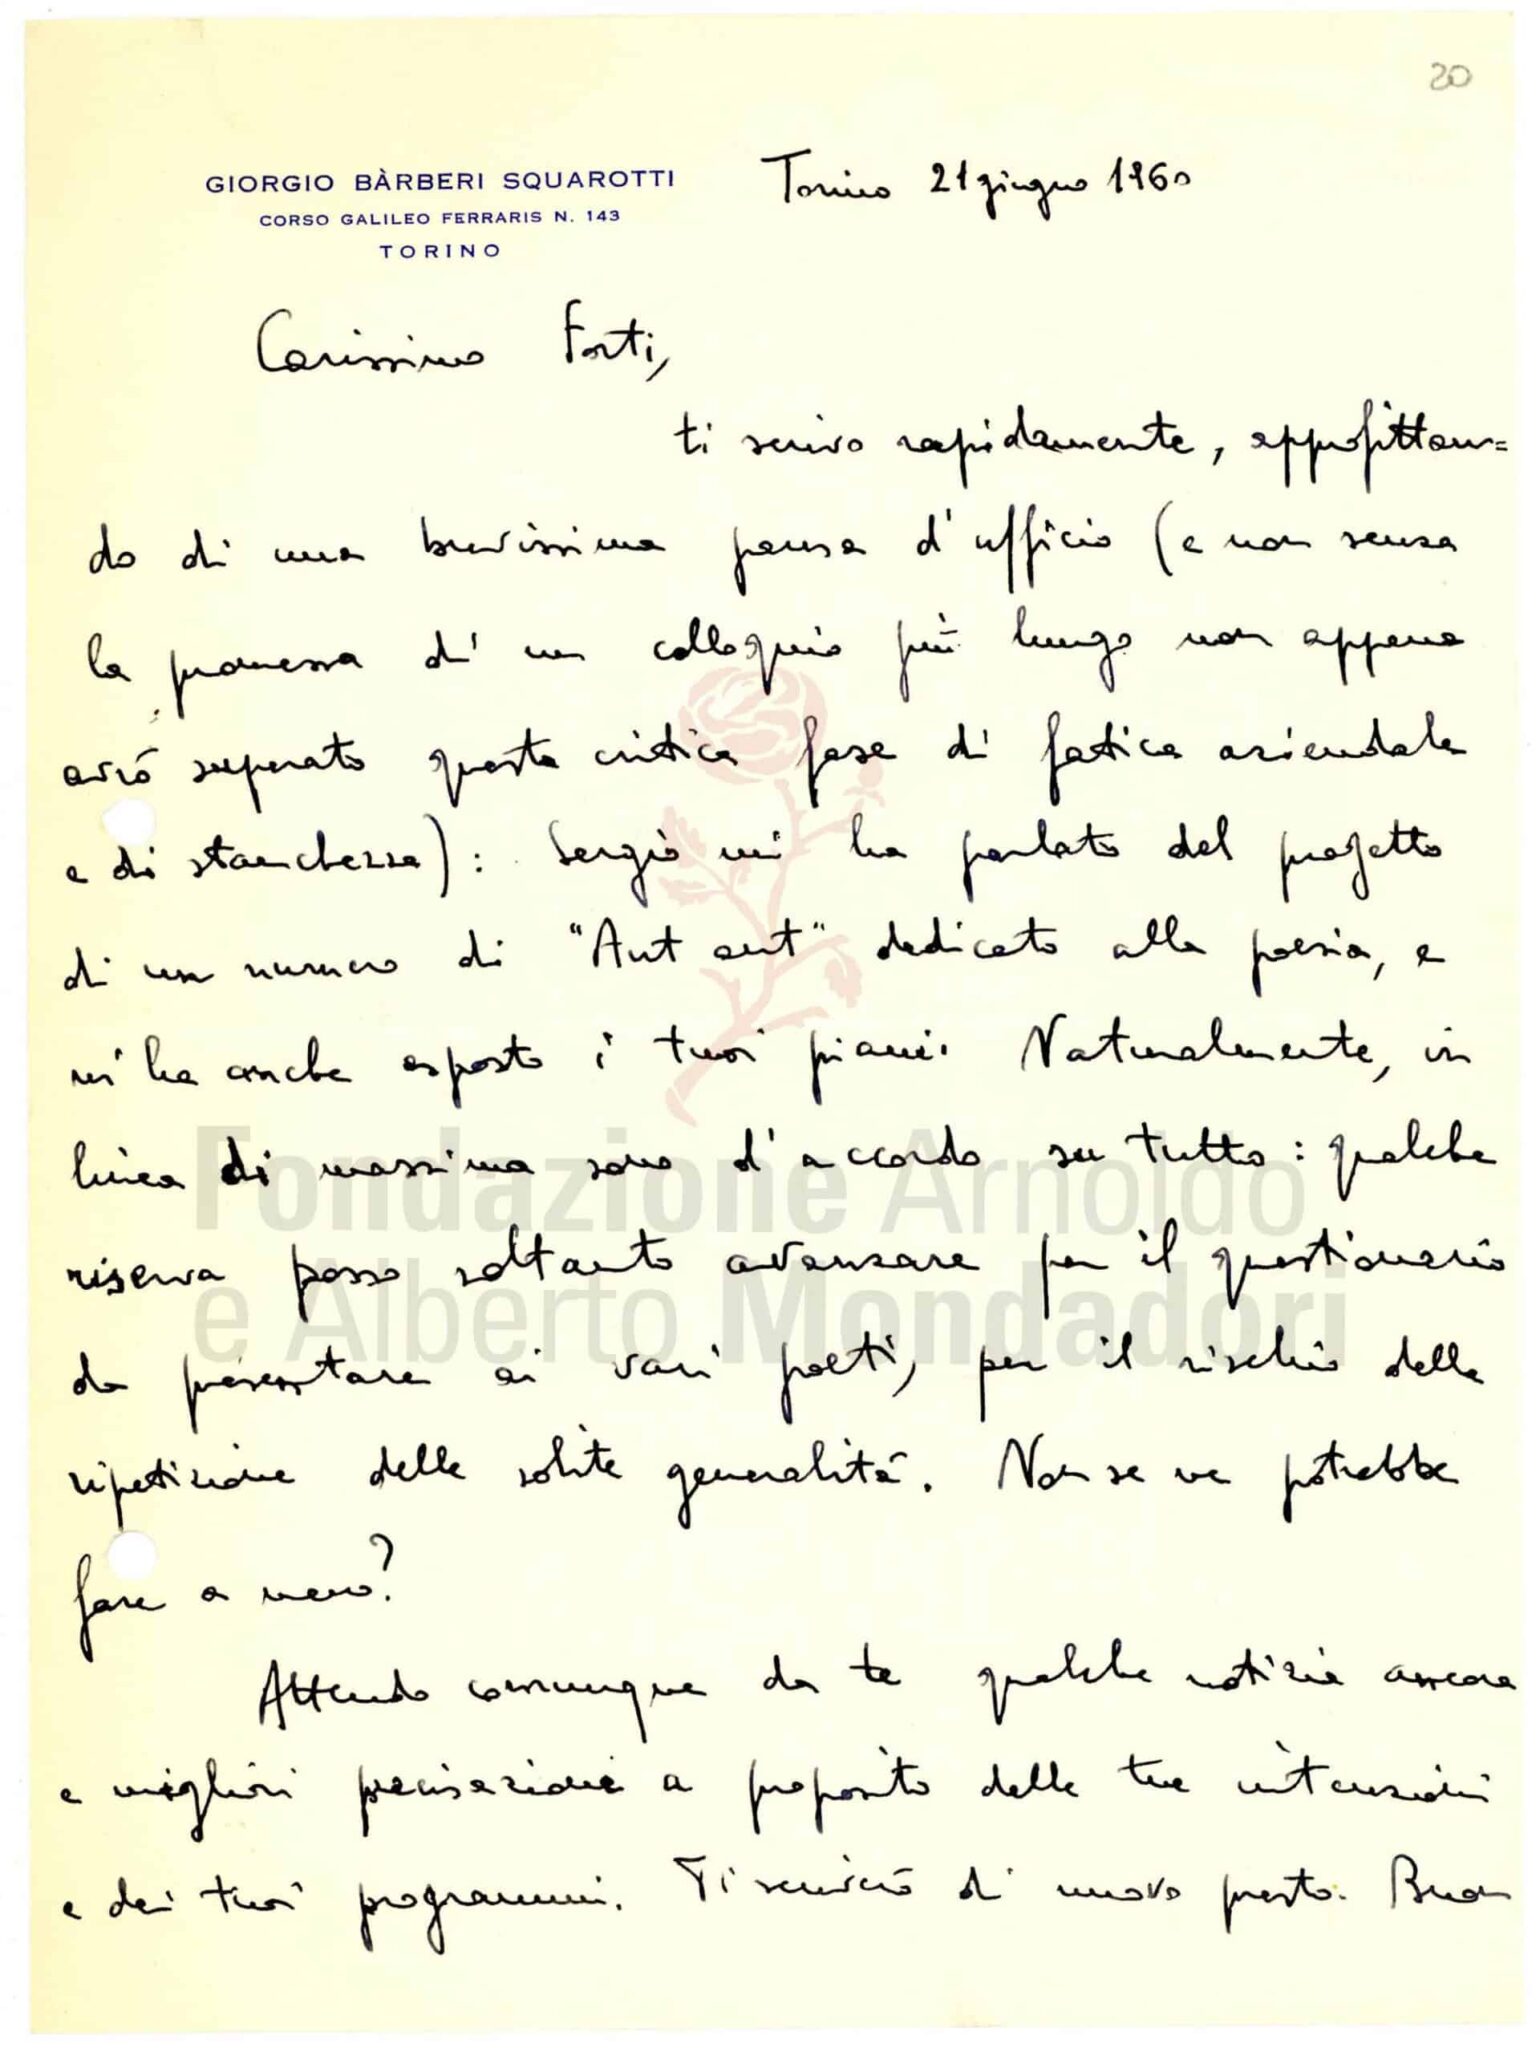 20
GIORGIO BÀRBERI SQUAROTTI
CORSO GALILEO FERRARIS N. 143
TORINO
Torino 21 giugno 1960
Carissimo Forti,
ti scrivo rapidamente, approfittan=
do di una brevissima pausa d'ufficio (e non senza
la promessa di un colloquio più lungo non appena
avrò superato questa critica fase di fatica aziendale
e di stanchezza): Sergio mi ha parlato del progetto
di un numero di "Aut aut" dedicato alla poesia, e
mi ha anche esposto i tuoi piani. Naturalmente, in
linea di massima sono d'accordo su tutto: qualche
riserva posso soltanto avanzare per il questionario
da presentare ai vari poeti, per il rischio della
ripetizione delle solite generalità. Non se ne potrebbe
fare a meno?
Attendo comunque da te qualche notizia ancora
e migliori precisazioni a proposito delle tue intenzioni
e dei tuoi programmi. Ti scriverò di nuovo presto. Buon
Fondazione Arnoldo
e Alberto Mondadori